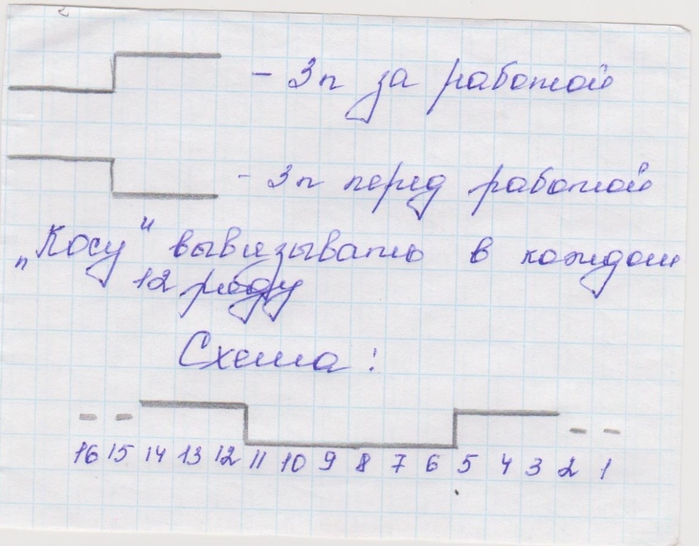 - 3п за работой
- 3п перед работой
„Косу" вывязывать в каждом
12 ряду
Схема:
16 15 14 13 12 11 10 9 8 7 6 5 4 3 2 1